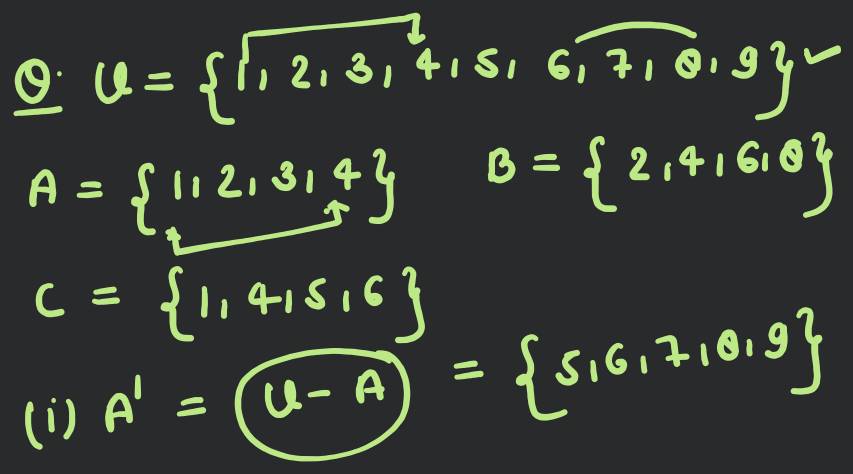 Q. U = {1, 2, 3, 4, 5, 6, 7, 8, 9} ✓
A = {1, 2, 3, 4} B = {2, 4, 6, 8}
C = {1, 4, 5, 6}
(i) A' = U - A = {5, 6, 7, 8, 9}